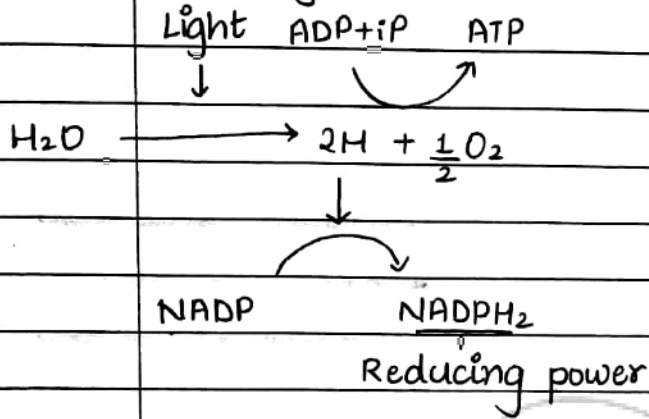 Light ADP+iP ATP
↓
H₂O → 2H + 1/2 O₂
↓
NADP NADPH₂
Reducing power